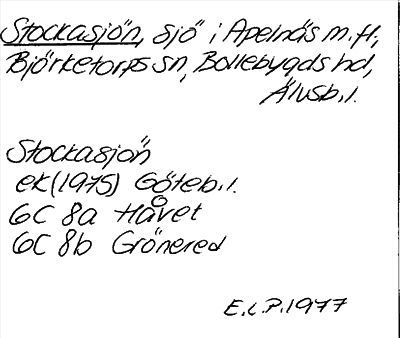 Stockasjön, sjö i Apelnäs m.fl.,
Björketorps sn, Bollebygds hd,
Älvsb.l.
Stockasjön
ek (1975) Göteb.l.
6C 8a Håvet
6C 8b Grönered
E.L.P. 1977